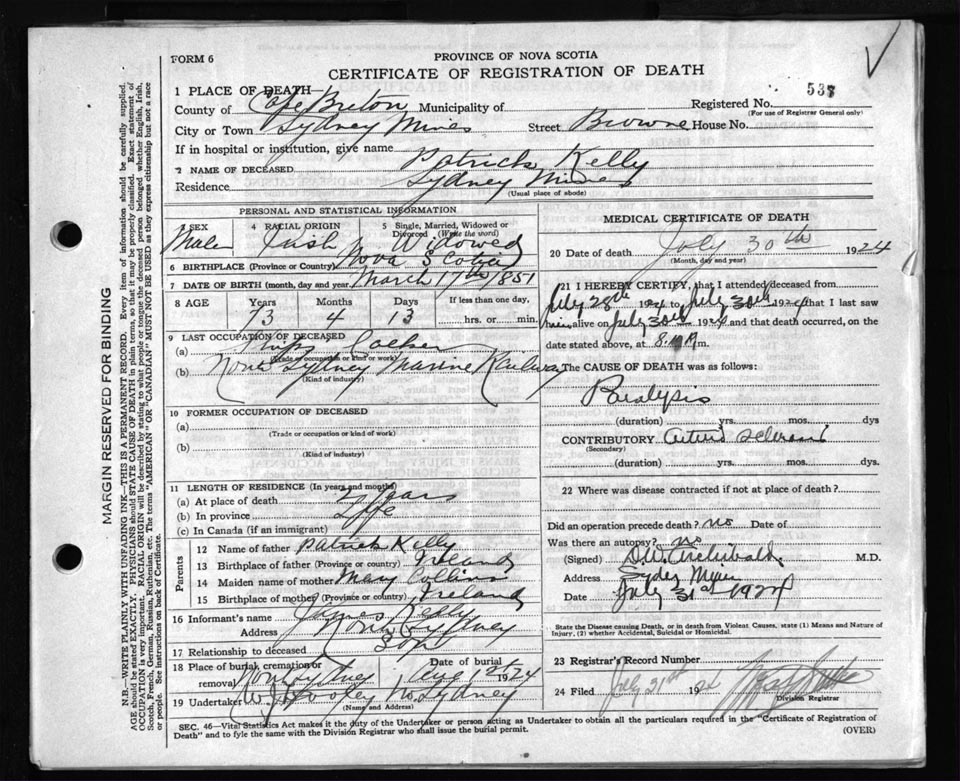 FORM 6
PROVINCE OF NOVA SCOTIA
CERTIFICATE OF REGISTRATION OF DEATH
1 PLACE OF DEATH—
Registered No. 537
(For use of Registrar General only)
County of Cape Breton Municipality of
City or Town Sydney Mines Street Browne House No.
If in hospital or institution, give name
2 NAME OF DECEASED Patrick Kelly
Residence Sydney Mines
(Usual place of abode)
PERSONAL AND STATISTICAL INFORMATION
3 SEX Male
4 RACIAL ORIGIN Irish
5 Single, Married, Widowed or Divorced (Write the word) Widowed
6 BIRTHPLACE (Province or Country) Nova Scotia
7 DATE OF BIRTH (month, day and year) March 17th 1851
8 AGE Years Months Days If less than one day,
73 4 13 hrs. or min.
9 LAST OCCUPATION OF DECEASED
(a) Ship
(Trade or occupation or kind of work)
(b) North Sydney Marine Railway
(Kind of industry)
10 FORMER OCCUPATION OF DECEASED
(a)
(Trade or occupation or kind of work)
(b)
(Kind of industry)
11 LENGTH OF RESIDENCE (In years and months)
(a) At place of death years
(b) In province Life
(c) In Canada (if an immigrant)
Parents
12 Name of father Patrick Kelly
13 Birthplace of father (Province or country) Ireland
14 Maiden name of mother Mary Collins
15 Birthplace of mother (Province or country) Ireland
16 Informant's name James Kelly
Address North Sydney
17 Relationship to deceased Son
18 Place of burial, cremation or removal North Sydney Date of burial Aug 1st 1924
19 Undertaker W. J. Dooley No Sydney
(Name and Address)
MEDICAL CERTIFICATE OF DEATH
20 Date of death July 30th 1924
(Month, day and year)
21 I HEREBY CERTIFY, that I attended deceased from
July 28th 1924 to July 30th 1924 that I last saw
him alive on July 30th 1924 and that death occurred, on
date stated above, at m.
The CAUSE OF DEATH was as follows:
Paralysis
(duration) yrs. mos. dys
CONTRIBUTORY Arterio sclerosis
(Secondary)
(duration) yrs. mos. dys.
22 Where was disease contracted if not at place of death?
Did an operation precede death? no Date of
Was there an autopsy? no
(Signed) Archibald M.D.
Address Sydney Mines
Date July 31st 1924
State the Disease causing Death, or in death from Violent Causes, state (1) Means and Nature of Injury, (2) whether Accidental, Suicidal or Homicidal.
23 Registrar's Record Number
24 Filed July 31st 1924
Division Registrar
SEC. 46—Vital Statistics Act makes it the duty of the Undertaker or person acting as Undertaker to obtain all the particulars required in the "Certificate of Registration of
Death" and to fyle the same with the Division Registrar who shall issue the burial permit.
(OVER)
MARGIN RESERVED FOR BINDING
N.B.—WRITE PLAINLY WITH UNFADING INK—THIS IS A PERMANENT RECORD. Every item of information should be carefully supplied.
AGE should be stated EXACTLY. PHYSICIANS should STATE CAUSE OF DEATH in plain terms, so that it may be properly classified. Exact statement of
OCCUPATION is very important. RACIAL ORIGIN will be described by stating to what people or tongue the deceased person belonged whether English, Irish,
Scotch, French, German, Russian, Ruthenian, etc. The terms "AMERICAN" OR "CANADIAN" MUST NOT BE USED as they express citizenship but not a race
or people. See instructions on back of Certificate.